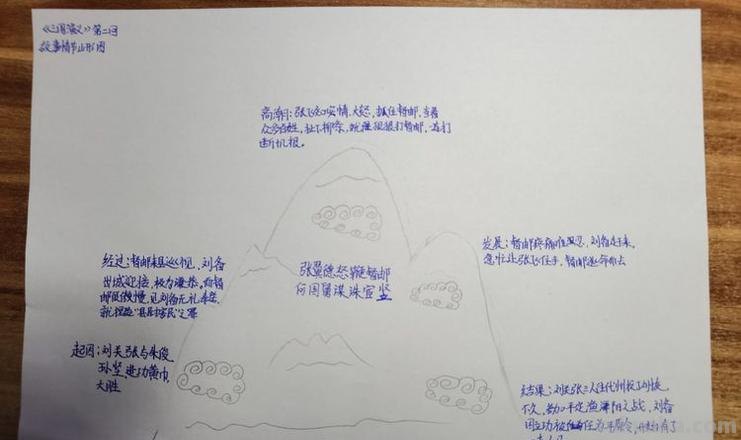 《三国演义》第二回
故事情节山形图
高潮:张飞知实情,大怒,抓住督邮,当着
众多百姓,扯下柳条,狠狠打督邮,
断几根。
经过:督邮来县巡视,刘备
出城迎接,极为谦恭。
邮很傲慢,见刘备无礼
就捏造"县吏害民"之罪
张翼德怒鞭督邮
何国舅谋诛宦竖
发展:督邮疼痛难忍,刘备走来,
急忙让张飞住手,督邮逃命而去
起因:刘关张与朱俊
孙坚,进攻黄巾,
大胜
结果:刘关张三人往代州投刘恢
不久,平定渔阳之战,刘备
因立功被